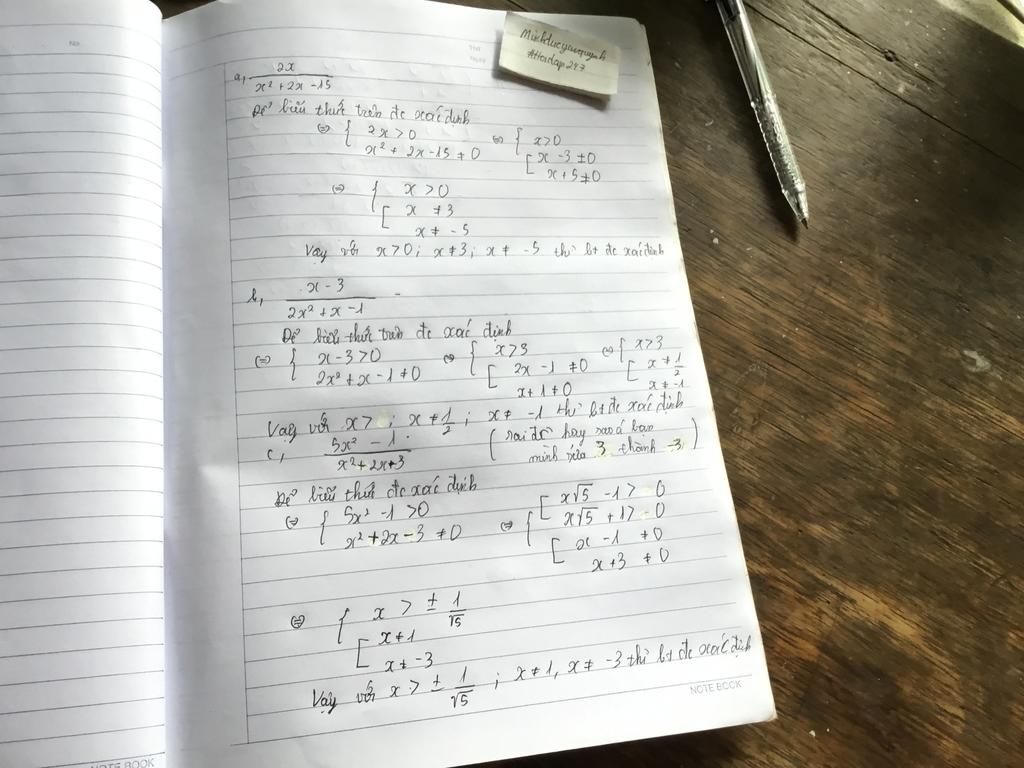 Minhducyeuquynh
#Hoidap247
a, 2x / x² + 2x - 15
Để biểu thức trên đc xác định
⇔ { 2x > 0 ⇔ { x > 0
x² + 2x - 15 ≠ 0 [ x - 3 ≠ 0
x + 5 ≠ 0
⇔ { x > 0
[ x ≠ 3
x ≠ - 5
Vậy với x > 0 ; x ≠ 3 ; x ≠ - 5 thì bt đc xác định
b, x - 3 / 2x² + x - 1
Để biểu thức trên đc xác định
⇔ { x - 3 > 0 ⇔ { x > 3 ⇔ { x > 3
2x² + x - 1 ≠ 0 [ 2x - 1 ≠ 0 [ x ≠ 1/2
x + 1 ≠ 0 x ≠ - 1
Vậy với x > ; x ≠ 1/2 ; x ≠ - 1 thì bt đc xác định
c, 5x² - 1 / x² + 2x + 3 ( sai đề hay sao á bạn
mình sửa 3 thành -3 )
Để biểu thức đc xác định
⇔ { 5x² - 1 > 0 ⇔ { [ x√5 - 1 > 0
x² + 2x - 3 ≠ 0 x√5 + 1 > 0
[ x - 1 ≠ 0
x + 3 ≠ 0
⇔ { x > ± 1/√5
[ x ≠ 1
x ≠ - 3
Vậy với x > ± 1/√5 ; x ≠ 1, x ≠ - 3 thì bt đc xác định
NOTE BOOK
NOTE BOOK